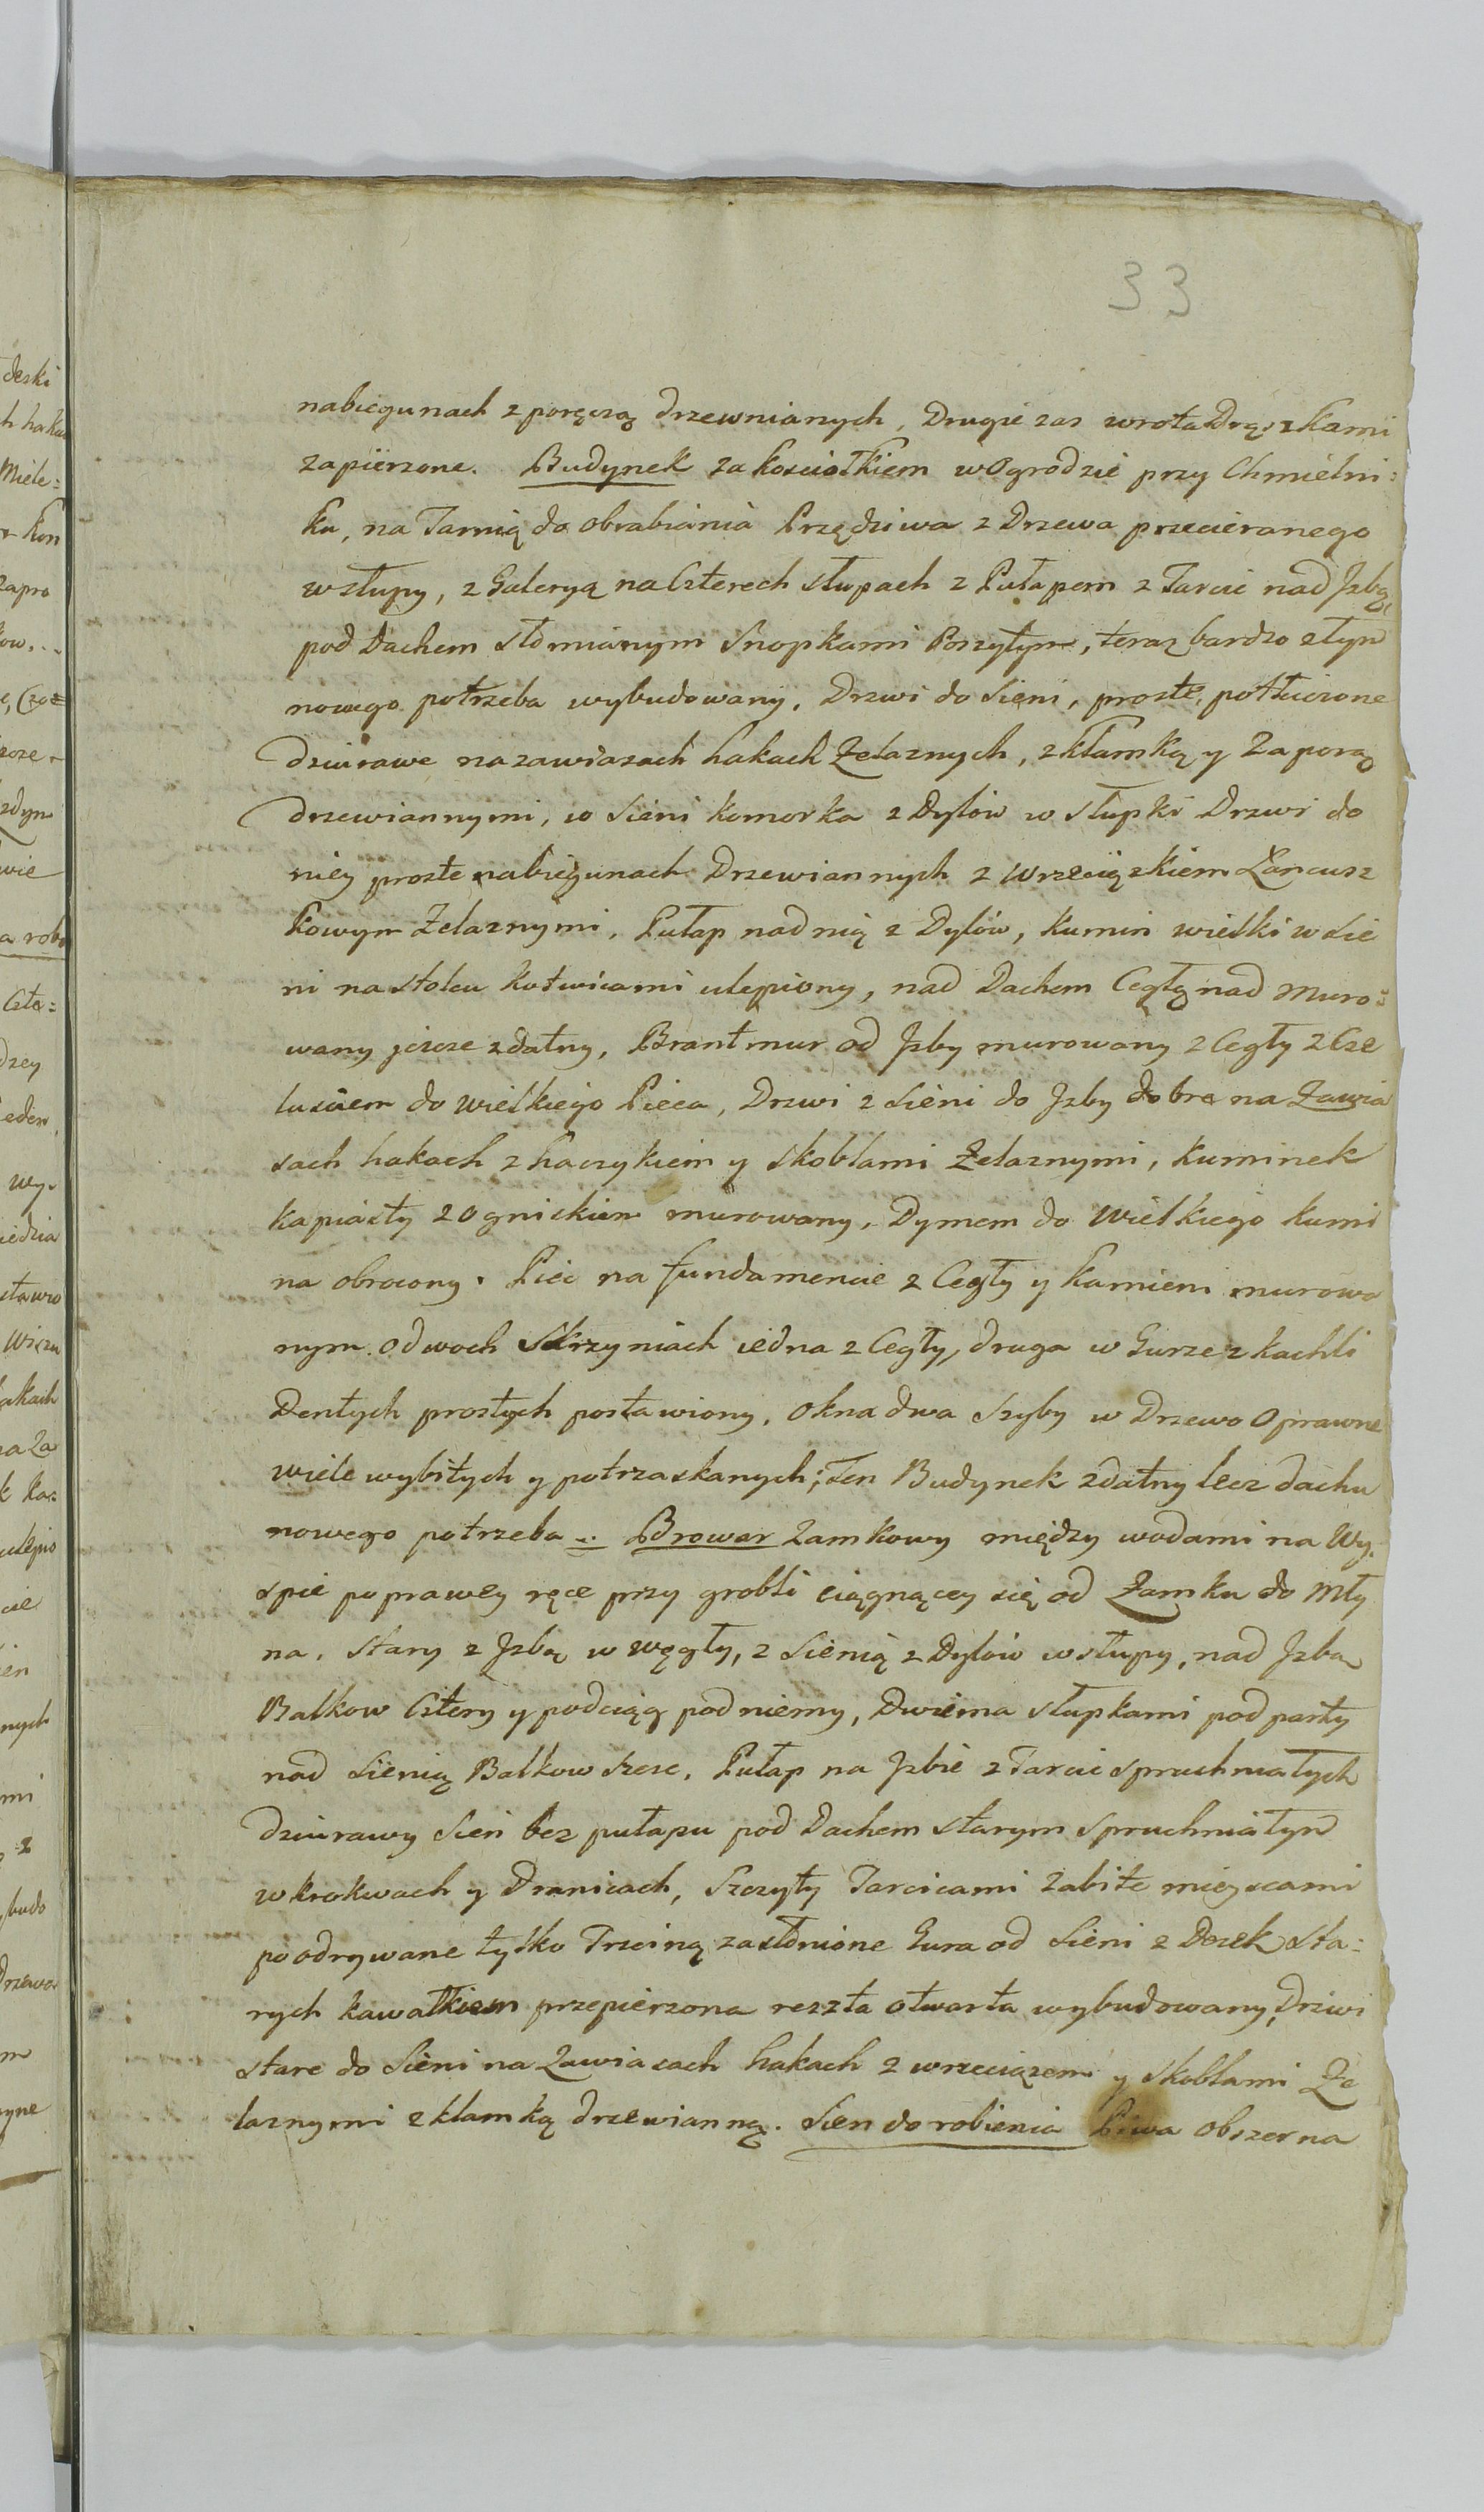 33
nabiegunach z poręczą drzewnianych, Drugie zas wrota Drązkami
zapiërzone. Budynek za kosciołkiem w Ogrodzie przy Chmielni:
ku, na Tarnią do obrabiania Przędziwa z Drzewa przecieranego
wsłupy, z Galeryą na Czterech słupach z Pułapem z Tarcic nad Jzbą,
pod Dachem słomianym Snopkami Poszytym, teraz bardzo złym
nowego potrzeba wybudowany, Drzwi do Sieni, proste, potłuczone
dziurawe na zawiasach hakach Zelaznych, z klamką y Zaporą
drzewiannymi, w Sieni komorka z Dylów w słupki Drzwi do
niey proste nabiegunach Drzewiannych z wrzeciązkiem Łancusz
kowym Zelaznymi, Pułap nad nią z Dylów, kumin wielki w Sie
ni na stolcu kotwicami ulepiony, nad Dachem Cegłą nad muro:
wany jescze zdatny, Brantmur od Jzby murowany z Cegły z Cze
lusciem do wielkiego Pieca, Drzwi z Sieni do Jzby dobre na Zawia
sach hakach z haczykiem y skoblami Zelaznymi, kuminek
kapiasty z Ogniskiem murowany, Dymem do Wielkiego kumi
na obrocony. Piec na fundamencie z Cegły y kamieni murowa
nym. odwoch Skrzyniach iedna z Cegły, druga w Gurze z kachli
Dentych prostych postawiony, okna dwa Szyby w Drzewo Oprawne
wiele wybitych y potrzaskanych; Ten Budynek zdatny lecz dachu
nowego potrzeba .. Browar Zamkowy między wodami na Wy:
spie po prawey ręce przy grobli ciągnącey się od Zamku do Mły
na, stary z Jzbą w węgły, z Sienią z Dylów w słupy, nad Jzbą
Balkow Cztery y podciąg pod niemy, Dwiema słupkami pod party
nad Sienią Balkow szesc, Pułap na Jzbie z Tarcic spruchniałych
dziurawy Sien bez pułapu pod Dachem starym spruchniałym
w krokwach y Dranicach, Szczyty Tarcicami Zabite mieyscami
poodrywane tylko Trzciną zasłonione Gura od Sieni z Desek sta:
rych kawałkiem przepierzona reszta otwarta wybudowany, Drzwi
stare do Sieni na Zawiasach hakach z wrzeciązem y skoblami Ze
laznymi z klamką drzewianną. Sien do robienia Piwa obszerna